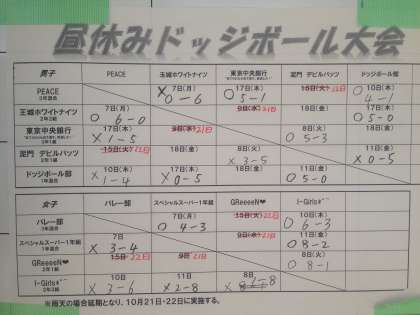 昼休みドッジボール大会
男子 PEACE 玉城ホワイトナイツ 東京中央銀行 足門 デビルバッツ ドッジボール部
PEACE
3年連合
7日(月) 17日(木) 10日(木)
× 0-6 ○ 5-1 ○ 4-1
玉城ホワイトナイツ
7日(月) 18日(金) 17日(木)
○ 6-0 ○ 5-0
東京中央銀行
17日(木) 8日(火) 18日(金)
× 1-5 ○ 5-3
足門 デビルバッツ
2年1組
15日(火) 18日(金) 8日(火) 11日(金)
× 3-5 × 0-5
ドッジボール部
1年連合
10日(木) 17日(木) 18日(金) 11日(金)
× 1-4 × 0-5 ○ 5-0
女子 バレー部 スペシャルスーパー1年組 GReeeeN♥ I-Girls
バレー部
7日(月) 15日(火) 10日(木)
○ 4-3 ○ 6-3
スペシャルスーパー1年組
7日 11日(金)
× 3-4 ○ 8-2
GReeeeN♥
2年1組
15日 22日 9日 8日(火)
○ 8-1
I-Girls
10日 11日 8日
× 3-6 × 2-8 × 1-8
※雨天の場合延期となり、10月21日・22日に実施する。